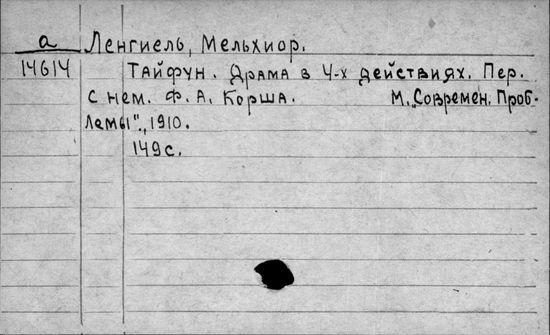 а Ленгиель, Мельхиор.
14614 Тайфун. Драма в 4-х действиях. Пер.
с нем. Ф. А. Корша. М. „Современ. Проб-
лемы", 1910.
149 с.